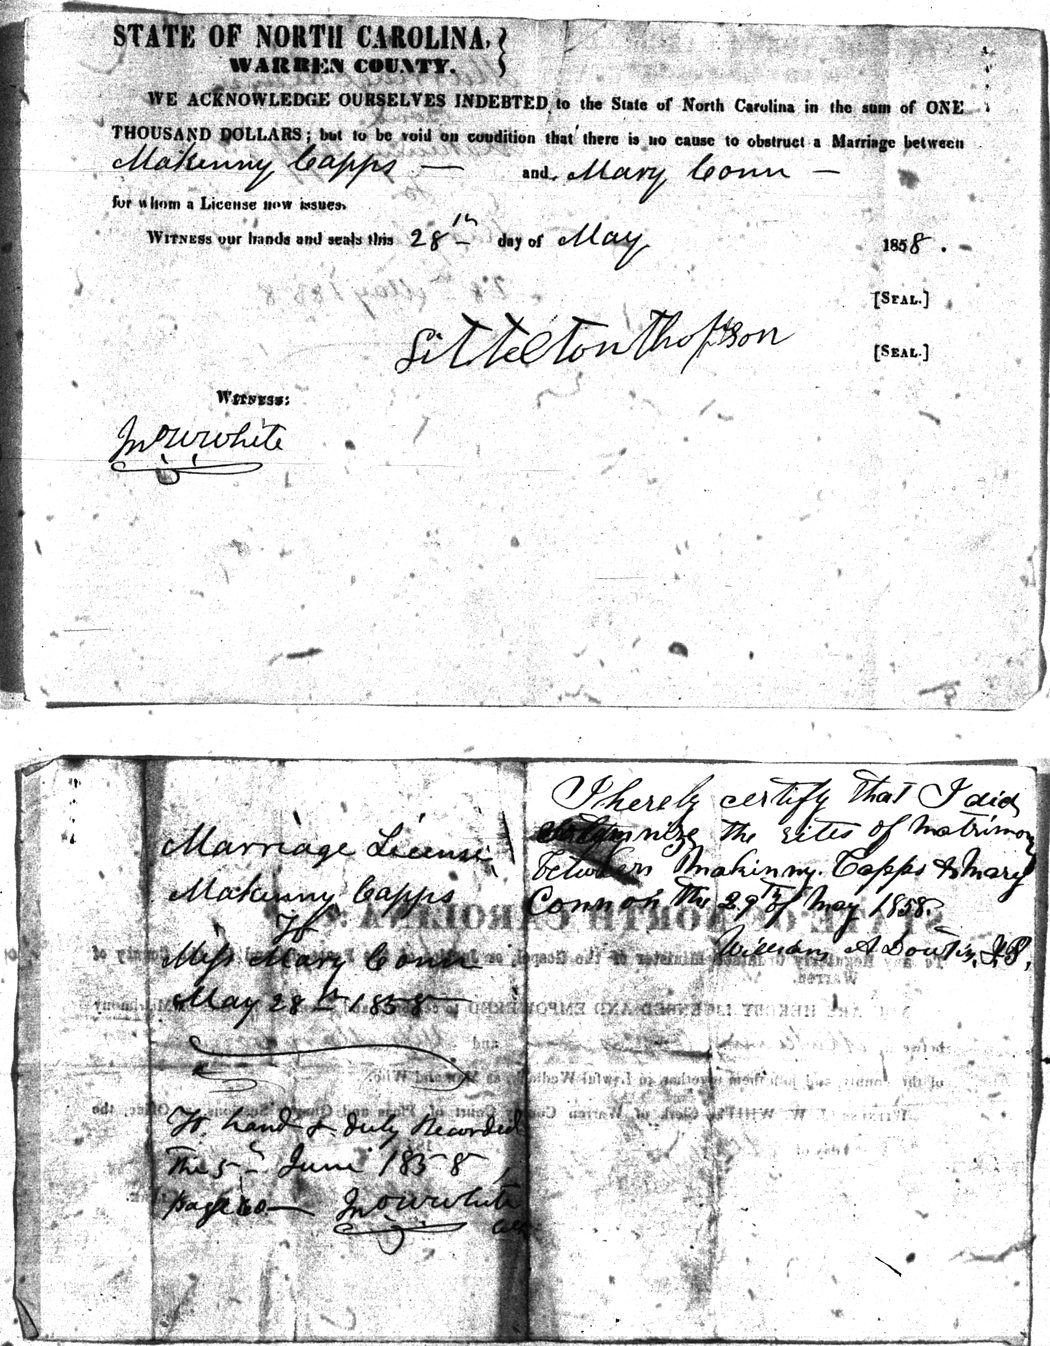 STATE OF NORTH CAROLINA,
WARREN COUNTY.
WE ACKNOWLEDGE OURSELVES INDEBTED, to the State of North Carolina in the sum of ONE
THOUSAND DOLLARS; but to be void on condition that there is no cause to obstruct a Marriage between
Makenny Capps — and Mary Conn —
for whom a License now issues.
WITNESS our hands and seals this 28th day of May 1858.
[SEAL.]
Littelton [SEAL.]
WITNESS:
Jno W White
Marriage License
Makenny Capps
To
Miss Mary Conn
May 28th 1858
To hand & duly Recorded
The 5th June 1858
page 60 — Jno W White
Clk
I hereby certify that I did
the rites of matrimony
between Makinny Capps & Mary
Conn on the 29th of May 1858.
William A J.P.
STATE OF NORTH CAROLINA
To any Regularly Minister of the Gospel, or County of
Warren.
YOU ARE HEREBY LICENSED AND EMPOWERED to Matrimony
and
of this county, and join them together in Lawful Wedlock, as Man and Wife.
WITNESS, J. W. WHITE, Clerk of Warren County Court of Pleas and Quarter Sessions, Office, the